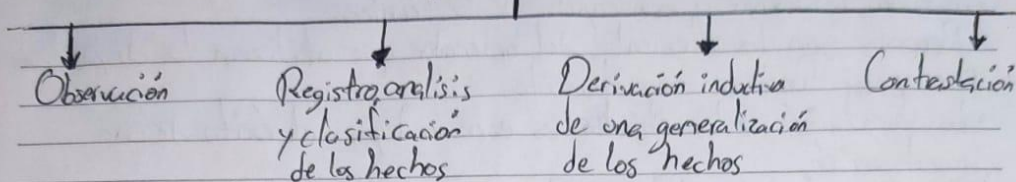 Observación
Registro, analisis
y clasificación
de los hechos
Derivación inductiva
de una generalización
de los hechos
Contrastación